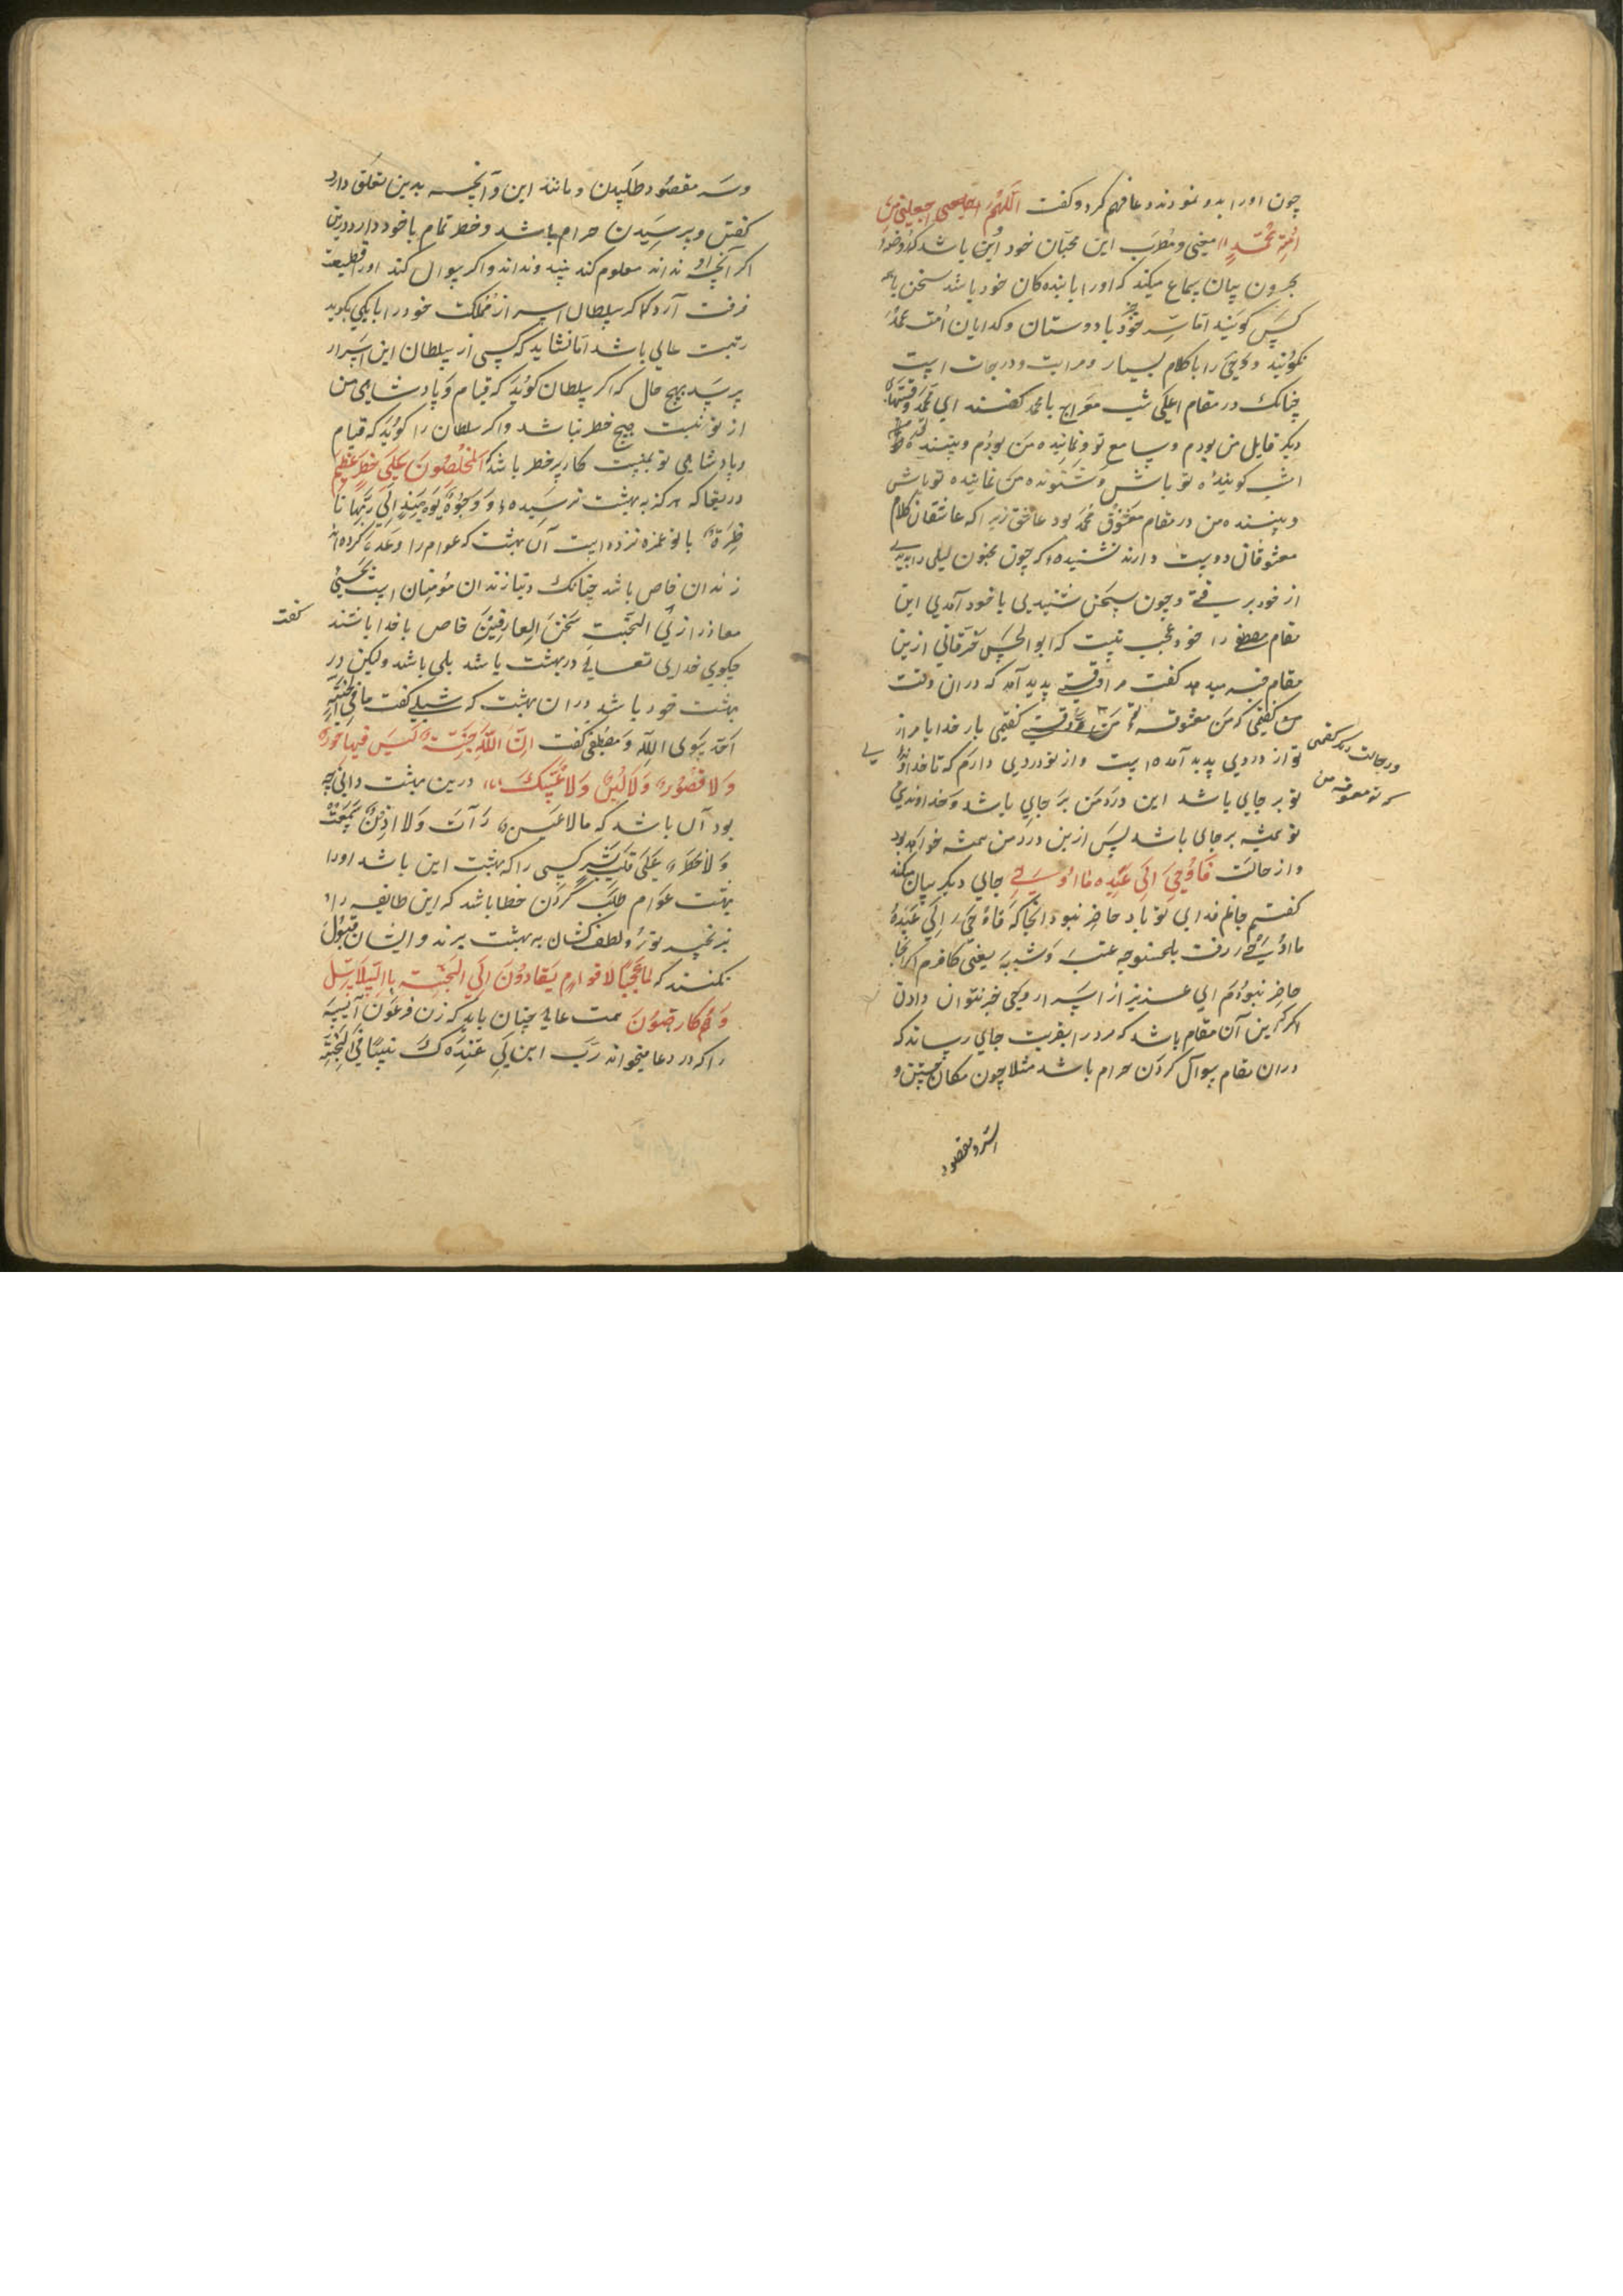 چون اورا بدو نمودند دعا فهم کرد و گفت اللّهُمَّ اجعلنی مِن
اُمّةِ مُحمّدٍ مغنی و مطرب این محبان خود این باشد که او خود
بیرون بیان سماع میکند که اورا با بنده کان خود باشد سخن با همه
کس گویند اما سِرّ خود با دوستان و گدایان امت محمد
نگویند و وحی را با کلام بسیار و مراتب و درجات است
چنانک در مقام اعلی شب معراج با محمد گفتند ای محمد وقتهاء
دیگر قایل من بودم و سامع تو و نماینده من بودم و بیننده تو
امشب گوینده تو باش و شنونده من نماینده تو باش
و بیننده من در مقام معشوق محمد بود عاشق زیرا که عاشقان کلام
معشوقان دوست دارند نشنیده که چون مجنون لیلی را بدیدی
از خود برفتی و چون سخن شنیدی با خود آمدی این
مقام مصطفی را خود عجب نیست که ابوالحسن خرقانی ازین
مقام گفت مرا وقتی پدید آمد که دران وقت
من گفتمی که من معشوقه تو وقتی گفتمی بار خدایا مرا از
در حالت دیگر گفتمی
که تو معشوقه من
تو از دردی پدید آمده است و از تو دردی دارم که تا خداوندی
تو بر جای باشد این درد من بر جای باشد و خداوندی
تو همیشه بر جای باشد پس ازین درد من همیشه خواهد بود
و از حالت فَاَوْحیَ اِلیَ عَبْدِه مٰا اَوْحی جای دیگر بیان میکند
گفتم جانم فدای تو باد حاضر نبود انجا که فاوحی الی عبده
ما اوحی رفت یعنی کافرم اگر انجا
حاضر نبودم ای عزیز از اسرار وحی خبر نتوان دادن
اگر ازین آن مقام باشد که مرد را بقربت جای رساند که
دران مقام سوال کردن حرام باشد مثلا چون مکان جستن و
وسه مقصود طلبیدن و مانند این و آنچه بدین تعلق دارد
گفتن و پرسیدن حرام باشد و خطر تمام با خود دارد درین
اگر آنچه او نداند معلوم کند بیند و نداند و اگر سوال کند اورا قطیعت
فرقت آرد که اگر سلطان اسرار از مملکت خود را با یکی بگوید
رتبت عالی باشد اما نشاید که کسی از سلطان این اسرار
پرسد بهیچ حال که اگر سلطان گوید که قیام و پادشاهی من
از تو نیست هیچ خطر نباشد و اگر سلطان را گوید که قیام
و پادشاهی تو بمنست کار پر خطر باشد که المُخلِصُونَ عَلیَ خطرٍ عَظِیم
دریغا که هرگز به بهشت نرسیده و وُجُوهٌ یَوْمَئِذٍ اِلیَ رَبِّهَا نَا
ظِرَةٌ با تو غمزه نزده است آن بهشت که عوام را وعده کرده اند
زندان خاص باشد چنانک دنیا زندان مؤمنان است یحیی
معاذ رازی الجَنّةِ سِجْنُ العارِفینَ خاص با خدا باشند
گفت
چگوی خدای تعالی در بهشت باشد بلی باشد ولیکن در
بهشت خود باشد در ان بهشت که شبلی گفت ما فی الجنّةِ
اَحَد سِوی اللّه و مصطفی گفت اِنّ لِلّه جَنّة لَیسَ فیها حُورٌ
وَلا قصُورٌ وَلا لَبَنٌ وَلا عَسَلٌ درین بهشت دانی چه
بود آن باشد که مالا عَینٌ رَأت وَلا اذُنٌ سَمِعَت
وَلا خَطَرَ عَلی قلبِ بَشَرٍ کسی را که بهشت این باشد اورا
بهشت عوام طلب کردن خطا باشد که این طایفه را
بزنجیر نور و لطف کشان به بهشت برند و ایشان قبول
نکنند که یا عَجَباً لِاقوامٍ یُقادُونَ اِلی الجَنّةِ بِالسّلاسِل
وَهُم کارِهُونَ همت عالی چنان باید که زن فرعون آسیه
را که در دعا میخواند رَبّ ابنِ لیِ عندک بَیتاً فی الجنّة